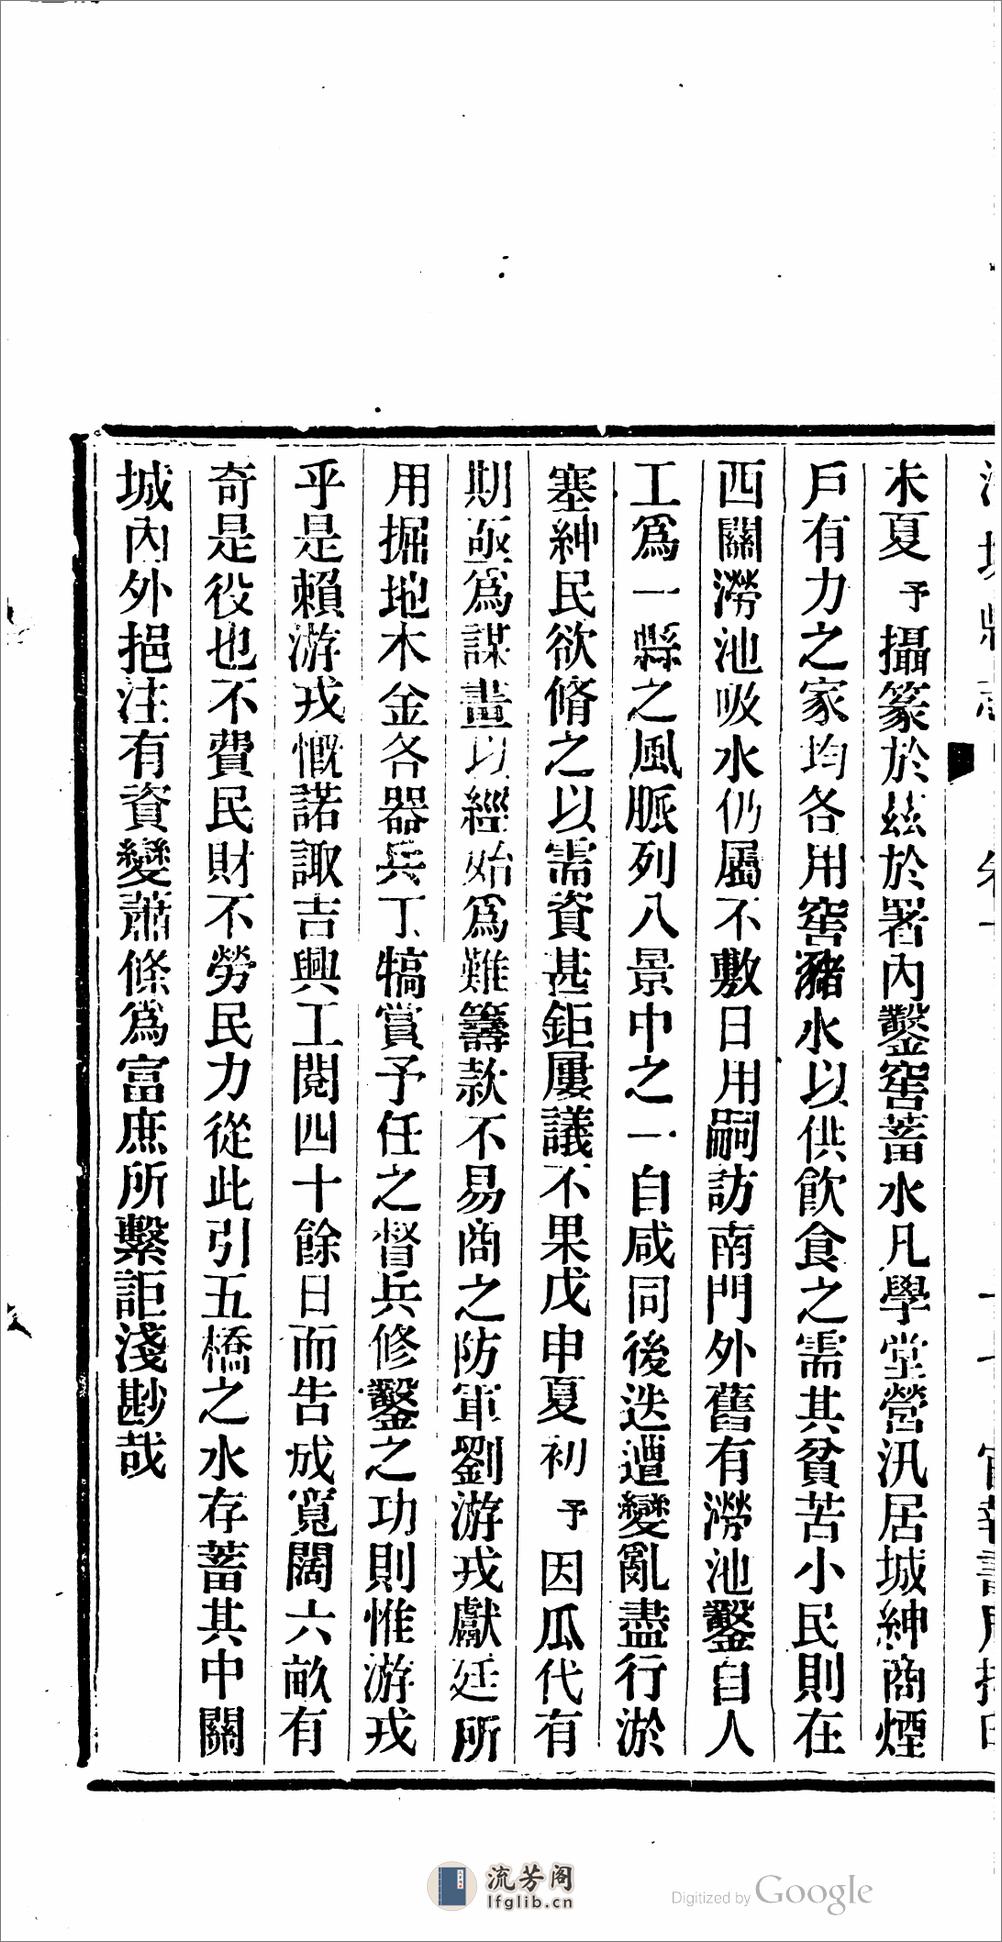 未夏予攝篆於玆於署內鑿窖蓄水凡學堂營汛居城紳商煙
戶有力之家均各用窖豬水以供飮食之需其貧苦小民則在
西關澇池吸水仍屬不敷日用嗣訪南門外舊有澇池鑿自人
工爲一縣之風脈列八景中之一自咸同後迭遭變亂盡行淤
塞紳民欲脩之以需資甚鉅屢議不果戊申夏初予因瓜代有
期亟爲謀畫以經始爲難籌款不易商之防軍劉游戎獻廷所
用掘地木金各器兵丁犒賞予任之督兵修鑿之功則惟游戎
乎是賴游戎慨諾諏吉興工閱四十餘日而告成寬闊六畝有
奇是役也不費民財不勞民力從此引五橋之水存蓄其中關
城內外挹注有資變蕭條爲富庶所繫詎淺尠哉
流芳阁
lfglib.cn
Digitized by Google